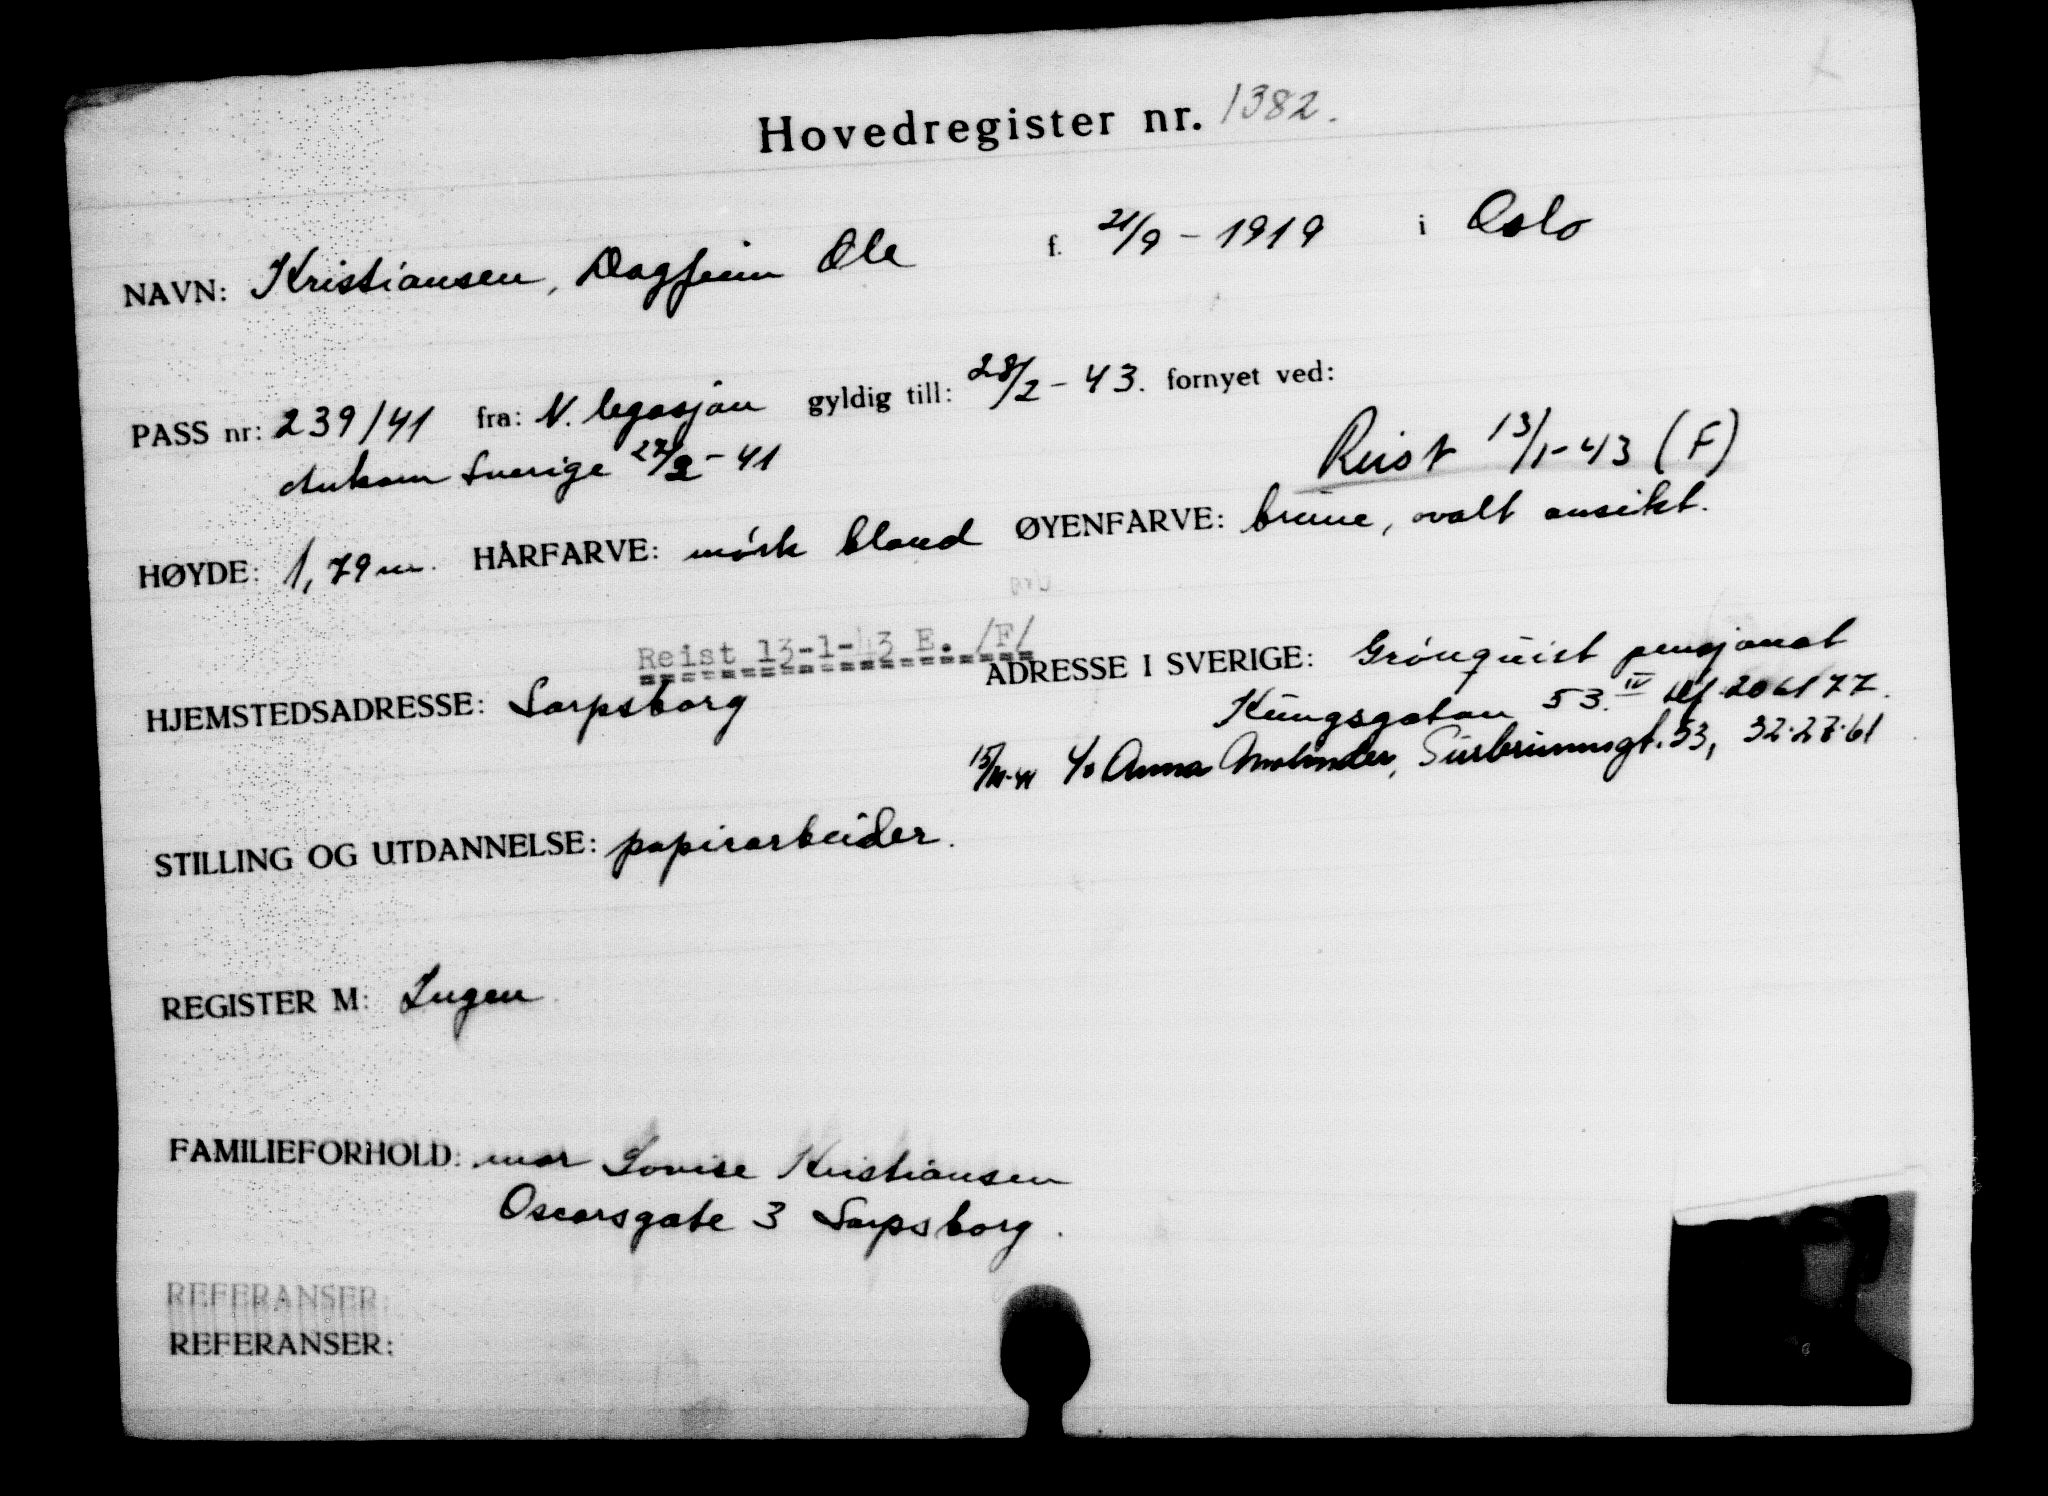 Hovedregister nr. 1382.
NAVN: Kristiansen, Dagfinn Ole f. 21/9 - 1919 i Oslo
PASS nr: 239/41 fra: N. legasjon gyldig till: 28/2 - 43. fornyet ved:
Ankom Sverige 27/2 - 41
Reist 13/1-43 (F)
HØYDE: 1,79 m. HÅRFARVE: mørk blond ØYENFARVE: brune, ovalt ansikt.
Reist 13-1-43 E. /F/
HJEMSTEDSADRESSE: Sarpsborg ADRESSE I SVERIGE: Grönquist pensjonat
Kungsgatan 53. IV tlf 206177.
15/11-41 c/o Anna Molinder, Surbrunnsgt. 53, 32.27.61
STILLING OG UTDANNELSE: papirarbeider.
REGISTER M: Ingen
FAMILIEFORHOLD: mor Lovise Kristiansen
Oscarsgate 3 Sarpsborg.
REFERANSER:
REFERANSER: